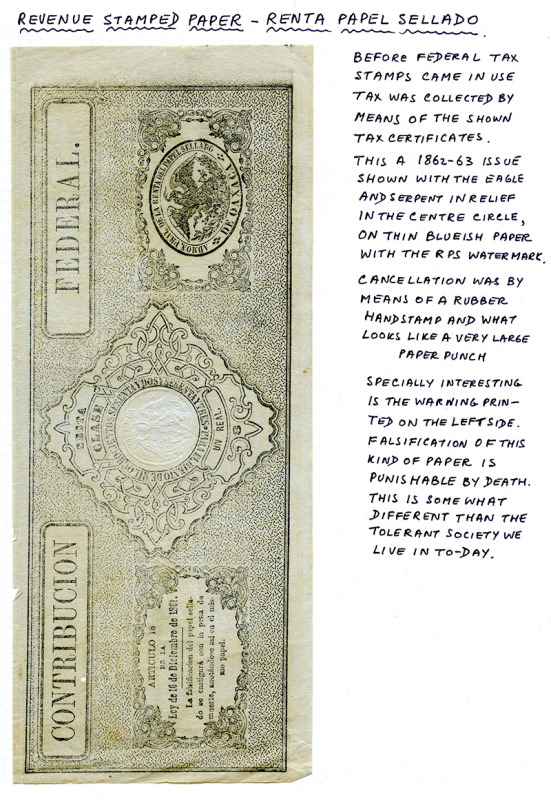 REVENUE STAMPED PAPER – RENTA PAPEL SELLADO.
BEFORE FEDERAL TAX
STAMPS CAME IN USE
TAX WAS COLLECTED BY
MEANS OF THE SHOWN
TAX CERTIFICATES.
THIS A 1862-63 ISSUE
SHOWN WITH THE EAGLE
AND SERPENT IN RELIEF
IN THE CENTRE CIRCLE,
ON THIN BLUEISH PAPER
WITH THE RPS WATERMARK.
CANCELLATION WAS BY
MEANS OF A RUBBER
HANDSTAMP AND WHAT
LOOKS LIKE A VERY LARGE
PAPER PUNCH
SPECIALLY INTERESTING
IS THE WARNING PRIN-
TED ON THE LEFTSIDE.
FALSIFICATION OF THIS
KIND OF PAPER IS
PUNISHABLE BY DEATH.
THIS IS SOME WHAT
DIFFERENT THAN THE
TOLERANT SOCIETY WE
LIVE IN TO-DAY.
CONTRIBUCION
FEDERAL.
ARTICULO 18
DE LA
Ley de 16 de Diciembre de 1861.
La falsificacion del papel sella-
do se castigará con la pena de
muerte, anotándose así en el mis-
mo papel.
SESTA
CLASE
SESENTA Y DOS Y SESENTA Y TRES
UN REAL.
DE LA RENTA DEL PAPEL SELLADO